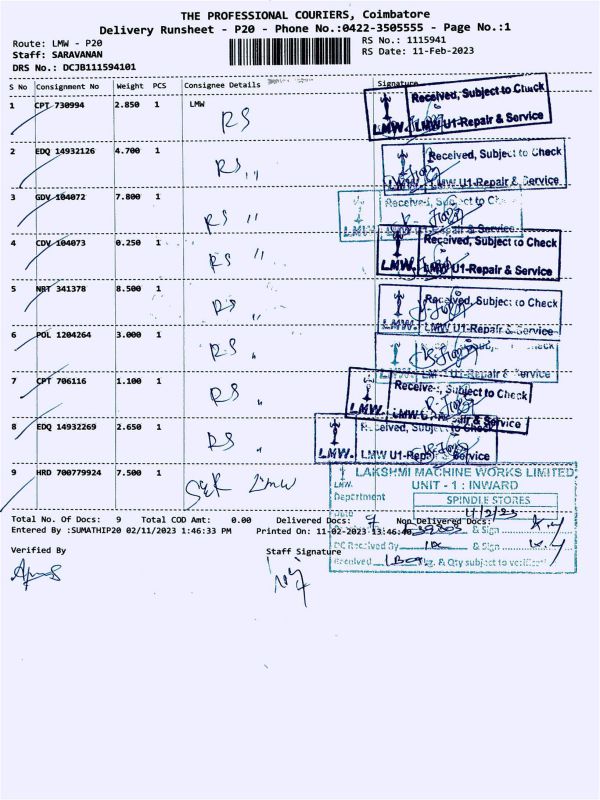 THE PROFESSIONAL COURIERS, Coimbatore
Delivery Runsheet - P20 - Phone No.:0422-3505555 - Page No.:1
Route: LMW - P20
RS No.: 1115941
Staff: SARAVANAN
RS Date: 11-Feb-2023
DRS No.: DCJB111594101
S No Consignment No Weight PCS Consignee Details Signature
1 CPT 730994 2.850 1 LMW
RS
LMW. Received, Subject to Check
LMW U1-Repair & Service
2 EDQ 14932126 4.700 1
RS ,,
Received, Subject to Check
LMW. LMW U1-Repair & Service
3 GDV 104072 7.800 1
RS "
Received, Subject to Check
LMW.
4 CDV 104073 0.250 1
RS "
Received, Subject to Check
LMW. LMW U1-Repair & Service
5 NRT 341378 8.500 1
RS ,,
Received, Subject to Check
LMW. LMW U1-Repair & Service
6 POL 1204264 3.000 1
RS "
LMW U1-Repair & Service
7 CPT 706116 1.100 1
RS "
Received, Subject to Check
LMW.
8 EDQ 14932269 2.650 1
RS "
Received, Subject to Check
LMW. LMW U1-Repair & Service
9 HRD 700779924 7.500 1
LMW
LAKSHMI MACHINE WORKS LIMITED
LMW. UNIT - 1 : INWARD
Department SPINDLE STORES
Date 11/2/23
Total No. Of Docs: 9 Total COD Amt: 0.00 Delivered Docs: 9 Non Delivered Docs:
Entered By :SUMATHIP20 02/11/2023 1:46:33 PM Printed On: 11-02-2023 13:46:40
& Sign
DC Received By & Sign
Received Pkg. & Qty subject to verification
Verified By
Staff Signature